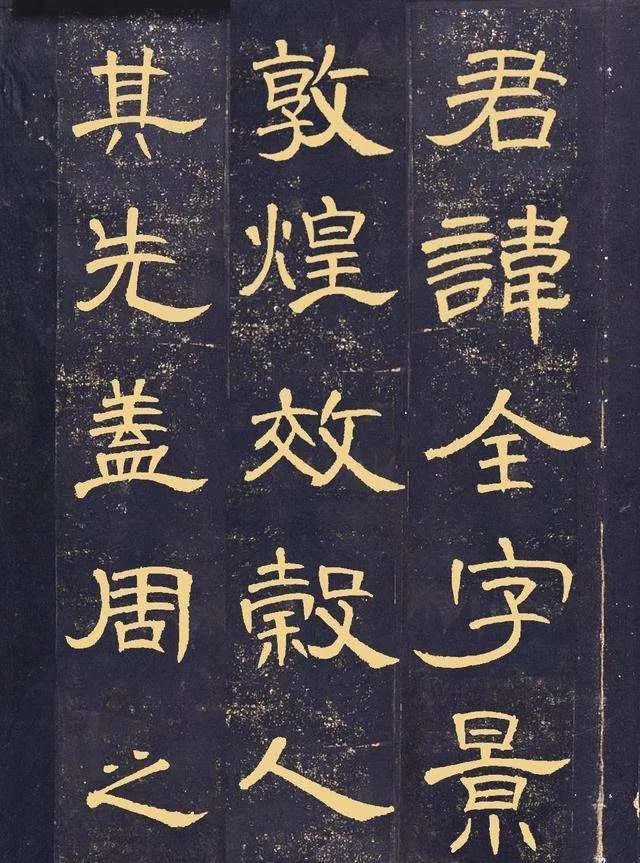 君諱全字景
敦煌效穀人
其先蓋周之